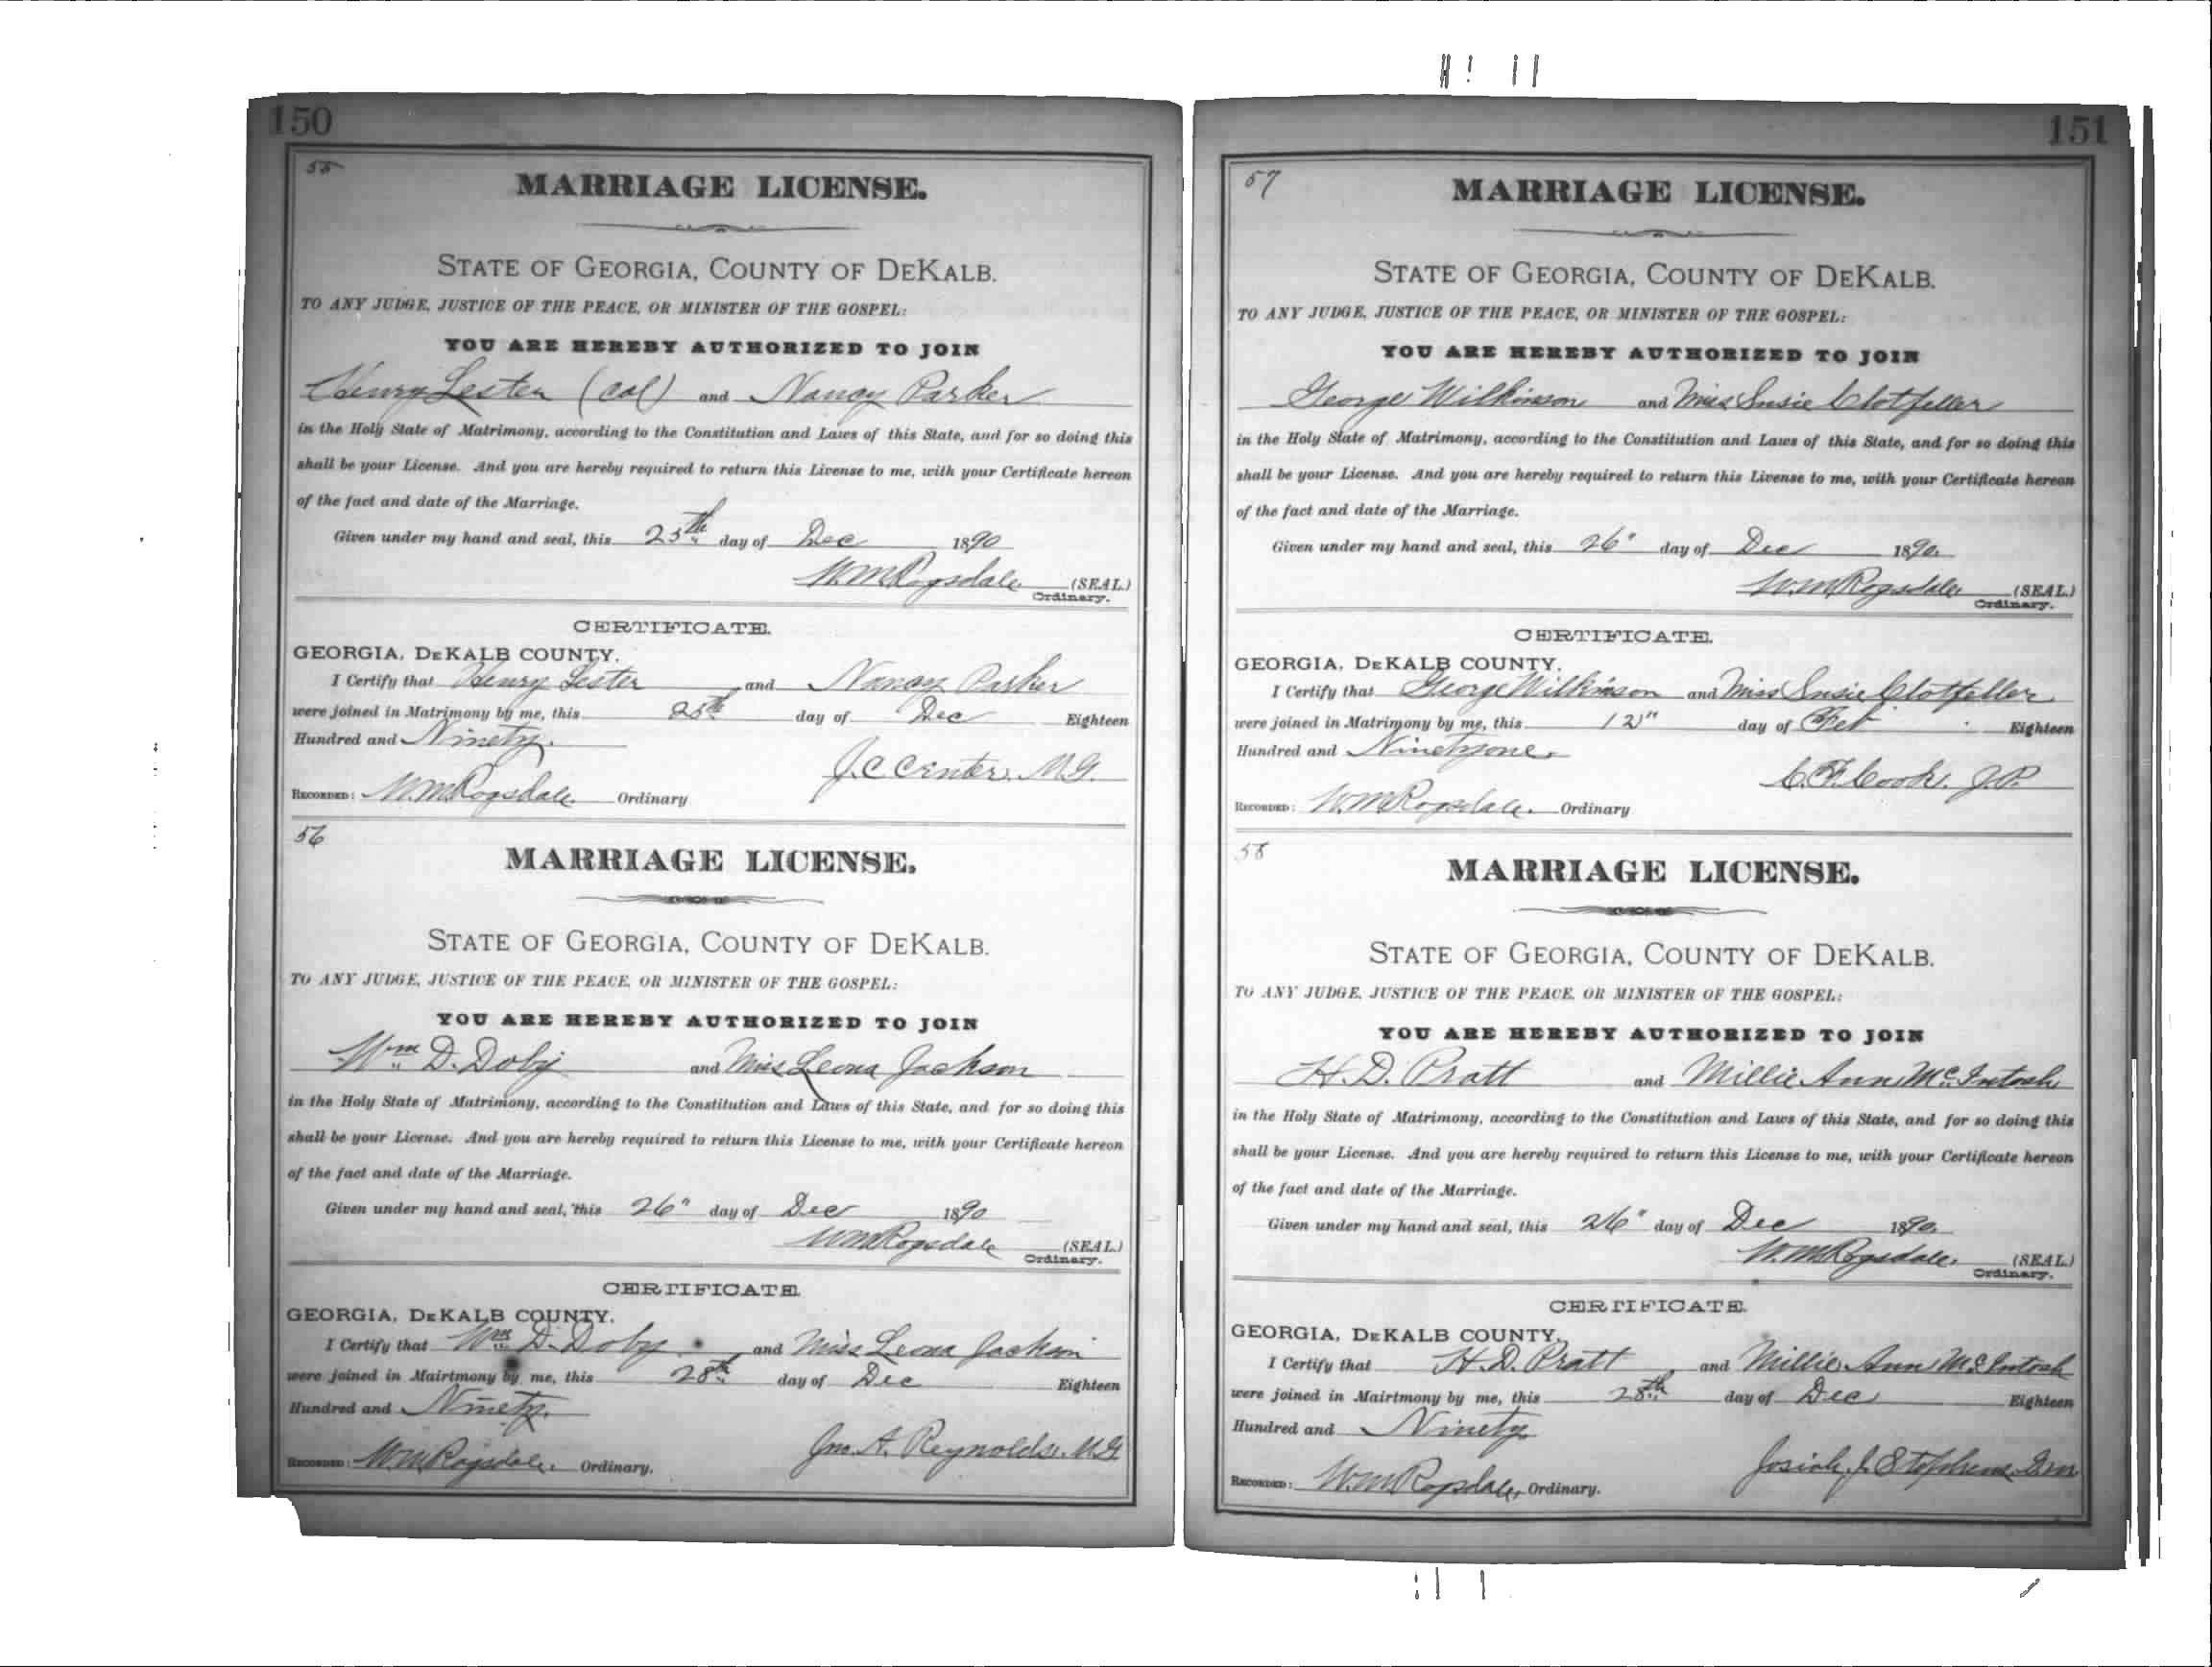 150
55
MARRIAGE LICENSE.
STATE OF GEORGIA, COUNTY OF DEKALB.
TO ANY JUDGE, JUSTICE OF THE PEACE, OR MINISTER OF THE GOSPEL:
YOU ARE HEREBY AUTHORIZED TO JOIN
Henry Lester (Col) and Nancy Parker
in the Holy State of Matrimony, according to the Constitution and Laws of this State, and for so doing this
shall be your License. And you are hereby required to return this License to me, with your Certificate hereon
of the fact and date of the Marriage.
Given under my hand and seal, this 25th day of Dec 1890
W.M. Ragsdale (SEAL.)
Ordinary.
CERTIFICATE.
GEORGIA, DEKALB COUNTY.
I Certify that Henry Lester and Nancy Parker
were joined in Matrimony by me, this 25th day of Dec Eighteen
Hundred and Ninety.
J.C. Center. M.G.
RECORDED: W.M. Ragsdale. Ordinary
56
MARRIAGE LICENSE.
STATE OF GEORGIA, COUNTY OF DEKALB.
TO ANY JUDGE, JUSTICE OF THE PEACE, OR MINISTER OF THE GOSPEL:
YOU ARE HEREBY AUTHORIZED TO JOIN
Wm D. Doby and Miss Leona Jackson
in the Holy State of Matrimony, according to the Constitution and Laws of this State, and for so doing this
shall be your License. And you are hereby required to return this License to me, with your Certificate hereon
of the fact and date of the Marriage.
Given under my hand and seal, this 26" day of Dec 1890
W.M. Ragsdale (SEAL.)
Ordinary.
CERTIFICATE
GEORGIA, DEKALB COUNTY.
I Certify that Wm D. Doby and Miss Leona Jackson
were joined in Mairtmony by me, this 28th day of Dec Eighteen
Hundred and Ninety.
Jno. A. Reynolds. M.G
RECORDED: W.M. Ragsdale. Ordinary.
151
57
MARRIAGE LICENSE.
STATE OF GEORGIA, COUNTY OF DEKALB.
TO ANY JUDGE, JUSTICE OF THE PEACE, OR MINISTER OF THE GOSPEL:
YOU ARE HEREBY AUTHORIZED TO JOIN
George Wilkinson and Miss Susie Clotfelter
in the Holy State of Matrimony, according to the Constitution and Laws of this State, and for so doing this
shall be your License. And you are hereby required to return this License to me, with your Certificate hereon
of the fact and date of the Marriage.
Given under my hand and seal, this 26" day of Dec 1890.
W.M. Ragsdale (SEAL.)
Ordinary.
CERTIFICATE.
GEORGIA, DEKALB COUNTY.
I Certify that George Wilkinson and Miss Susie Clotfelter
were joined in Matrimony by me, this 12" day of Feb Eighteen
Hundred and Ninetyone.
C.F. Cook. J.P.
RECORDED: W.M. Ragsdale. Ordinary
58
MARRIAGE LICENSE.
STATE OF GEORGIA, COUNTY OF DEKALB.
TO ANY JUDGE, JUSTICE OF THE PEACE, OR MINISTER OF THE GOSPEL:
YOU ARE HEREBY AUTHORIZED TO JOIN
H.D. Pratt and Millie Ann McIntosh
in the Holy State of Matrimony, according to the Constitution and Laws of this State, and for so doing this
shall be your License. And you are hereby required to return this License to me, with your Certificate hereon
of the fact and date of the Marriage.
Given under my hand and seal, this 26" day of Dec 1890.
W.M. Ragsdale. (SEAL.)
Ordinary.
CERTIFICATE.
GEORGIA, DEKALB COUNTY.
I Certify that H.D. Pratt and Millie Ann McIntosh
were joined in Mairtmony by me, this 28th day of Dec Eighteen
Hundred and Ninety
Josiah J.
RECORDED: W.M. Ragsdale, Ordinary.